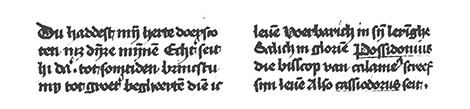 Du haddest mȳ herte doerso
ten mz dyre mȳnen Echt seit
hi da· tot somtiden brincstu
my tot groet begheerte die ic
leuē Voerbarich in sȳ lerīghe
Salich in gloriēn Possidonius
die bisscop van calamēs screef
sijn leuē Also cassiodorus seit·